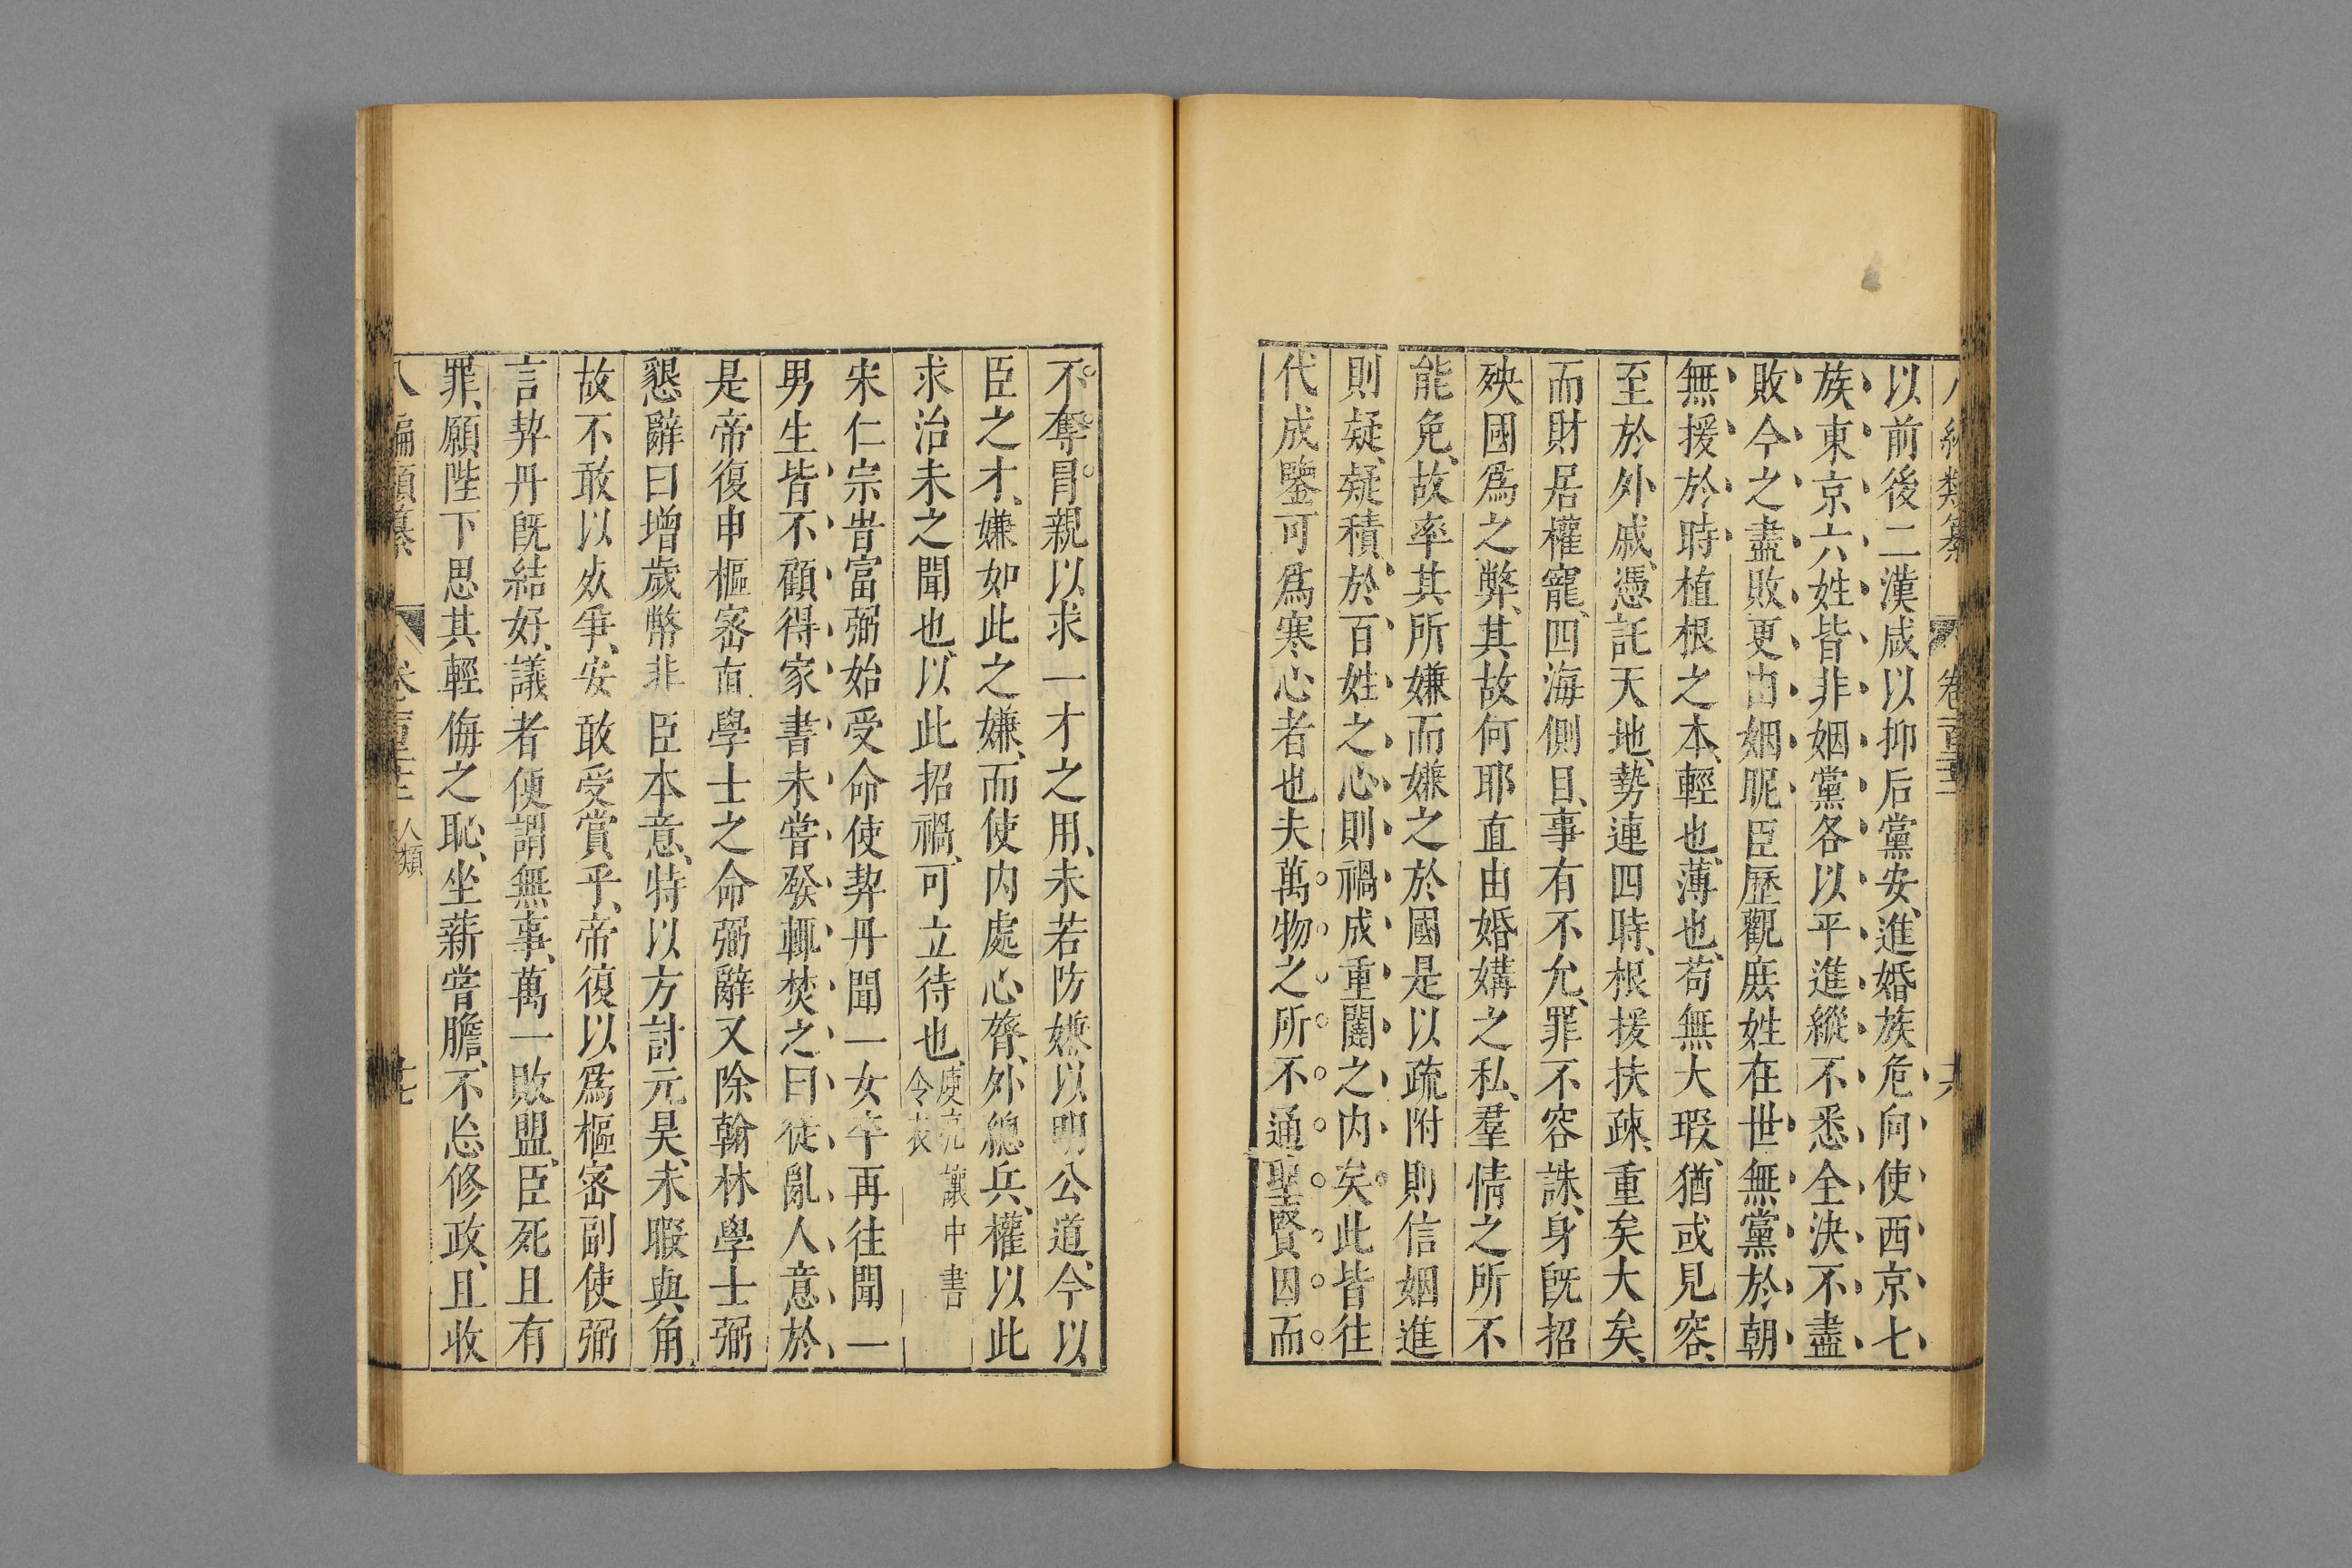 編類纂 卷一百三十三 十六
以前後二漢咸以抑后黨安、進婚族危、向使西京七
族、東京六姓、皆非姻黨、各以平進、縱不悉全、決不盡
敗、今之盡敗、更由姻昵、臣歷觀庶姓在世、無黨於朝、
無援於時、植根之本、輕也、薄也、苟無大瑕、猶或見容、
至於外戚、憑託天地、勢連四時、根援扶疎、重矣大矣、
而財居權寵、四海側目、事有不允、罪不容誅、身旣招
殃、國爲之弊、其故何耶、直由婚媾之私、羣情之所不
能免、故率其所嫌而嫌之於國、是以疏附則信、姻進
則疑、疑積於百姓之心、則禍成重闥之内矣、此皆往
代成鑒、可爲寒心者也、夫萬物之所不通、聖賢因而
不奪、冒親以求一才之用、未若防嫌以明公道、今以
臣之才、嫌如此之嫌、而使内處心膂、外總兵權、以此
求治、未之聞也、以此招禍、可立待也、庾亮讓中書令表
宋仁宗旹、富弼始受命使契丹、聞一女卒、再往、聞一
男生、皆不顧、得家書、未嘗發、輒焚之、曰、徒亂人意、於
是帝復申樞密直學士之命、弼辭、又除翰林學士、弼
懇辭曰、增歲幣非臣本意、特以方討元昊、未暇與角、
故不敢以死爭、安敢受賞乎、帝復以爲樞密副使、弼
言、契丹旣結好、議者便謂無事、萬一敗盟、臣死且有
罪、願陛下思其輕侮之恥、坐薪嘗膽、不忘修政、且收
八編類纂 卷一百三十三 人類 十七